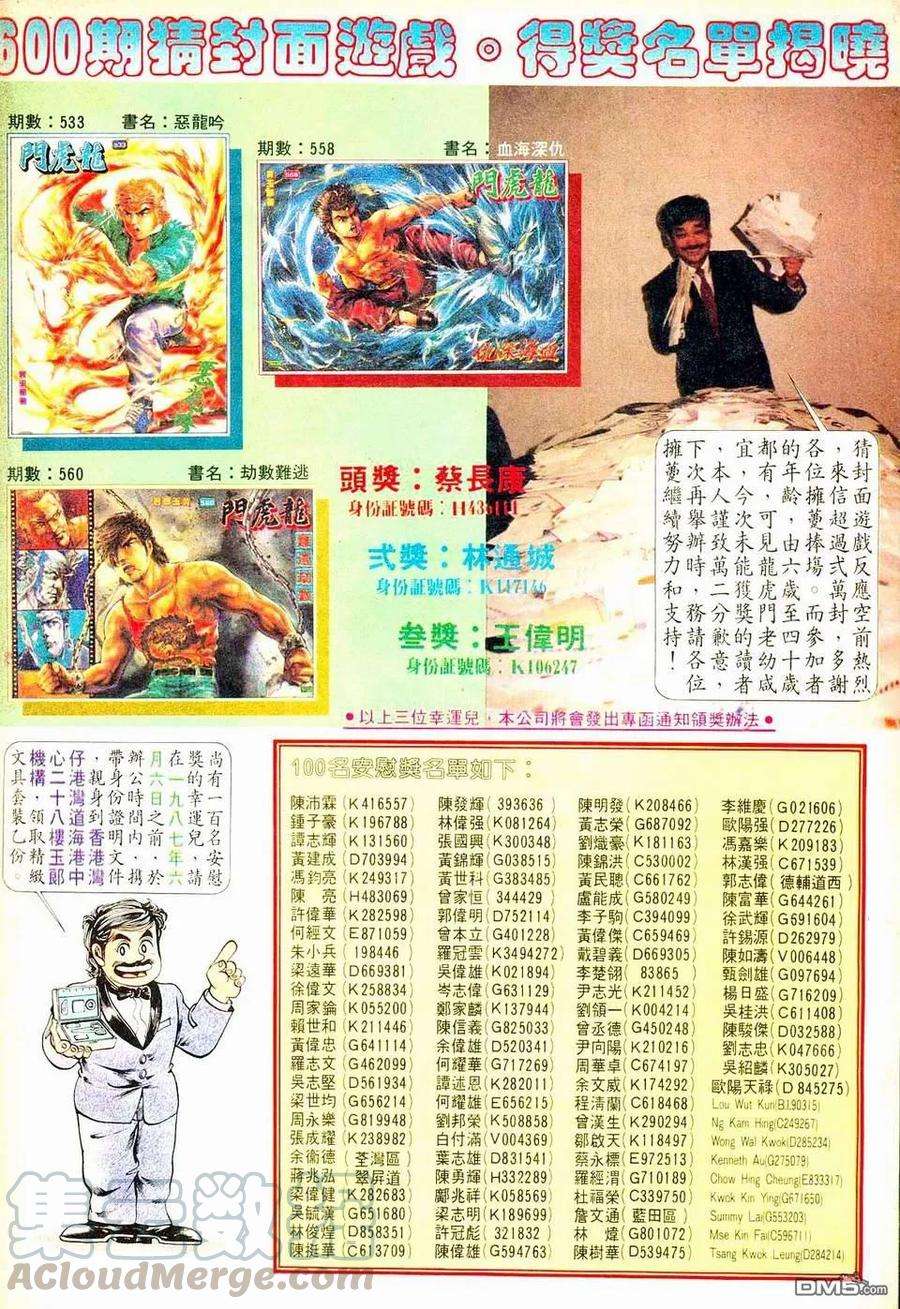 600期猜封面遊戲。得獎名單揭曉
期數：533 書名：惡龍吟
龍虎門
533
期數：558 書名：血海深仇
龍虎門
558
血海深仇
期數：560 書名：劫數難逃
龍虎門
560
頭獎：蔡長康
弍獎：林通城
叁獎：王偉明
●以上三位幸運兒，本公司將會發出專函通知領獎辦法●
猜封面遊戲反應空前熱烈
，來信超過式萬封，多謝
各位擁躉捧場。而參加者
的年齡，由六歲至四十歲
都有，可見龍虎門老幼咸
宜，今次未能獲獎的讀者
，本人謹致萬二分歉意，
下次再舉辦時，務請各位
擁躉繼續努力和支持！
尚有一百名安慰
獎的幸運兒，請
在一九八七年六
月六日之前，於
辦公時間內，携
帶身份證明文件
，親身到香港灣
仔港灣道海港中
心二十八樓玉郎
機構，領取精緻
文具套裝乙份。
100名安慰獎名單如下：
陳沛霖(K416557)
鍾子豪(K196788)
譚志輝(K131560)
黃建成(D703994)
馮鈞亮(K249317)
陳 亮(H483069)
許偉華(K282598)
何經文(E871059)
朱小兵( 198446 )
梁遠華(D669381)
徐偉文(K258834)
周家鑰(K055200)
賴世和(K211446)
黃偉忠(G641114)
羅志文(G462099)
吳志堅(D561934)
梁世均(G656214)
周永樂(G819948)
張成耀(K238982)
余衛德(荃灣區)
蔣兆泓(翠屏道)
梁偉健(K282683)
吳毓漢(G651680)
林俊煌(D858351)
陳挺華(C613709)
陳發輝( 393636 )
林偉强(K081264)
張國興(K300348)
黃錦輝(G038515)
黃世科(G383485)
曾家恒( 344429 )
郭偉明(D752114)
曾本立(G401228)
羅冠雲(K3494272)
吳偉雄(K021894)
岑志偉(G631129)
鄭家麟(K137944)
陳信義(G825033)
余偉雄(D520341)
何耀華(G717269)
譚述恩(K282011)
何耀雄(E656215)
劉邦榮(K508858)
白付滿(V004369)
葉志雄(D831541)
陳勇輝(H332289)
鄺兆祥(K058569)
梁志明(K189699)
許冠彪( 321832 )
陳偉雄(G594763)
陳明發(K208466)
黃志榮(G687092)
劉熾豪(K181163)
陳錦洪(C530002)
黃民聰(C661762)
盧能成(G580249)
李子駒(C394099)
黃偉傑(C659469)
戴碧義(D669305)
李楚翎( 83865 )
尹志光(K211452)
劉領一(K004214)
曾丞德(G450248)
尹向陽(K210216)
周華卓(C674197)
余文威(K174292)
程淸蘭(C618468)
曾漢生(K290294)
鄒啟天(K118497)
蔡永標(E972513)
羅經渭(G710189)
杜福榮(C339750)
詹文通(藍田區)
林 煒(G801072)
陳樹華(D539475)
李維慶(G021606)
歐陽强(D277226)
馮嘉樂(K209183)
林漢强(C671539)
郭志偉(德輔道西)
陳富華(G644261)
徐武輝(G691604)
許錫源(D262979)
陳如濤(V006448)
甄劍雄(G097694)
楊日盛(G716209)
吳桂洪(C611408)
陳駿傑(D032588)
劉志忠(K047666)
吳紹麟(K305027)
歐陽天祿(D845275)
Lou Wut Kun(B.I.90315)
Ng Kam Hing(C249267)
Wong Wai Kwok(D285234)
Kenneth Au(G275079)
Chow Hing Cheung(E833317)
Kwok Kin Ying(G671650)
Summy Lai(G553203)
Mse Kin Fai(C596711)
Tsang Kwok Leung(D284214)
集云数通
ACloudMerge.com
DM5.com